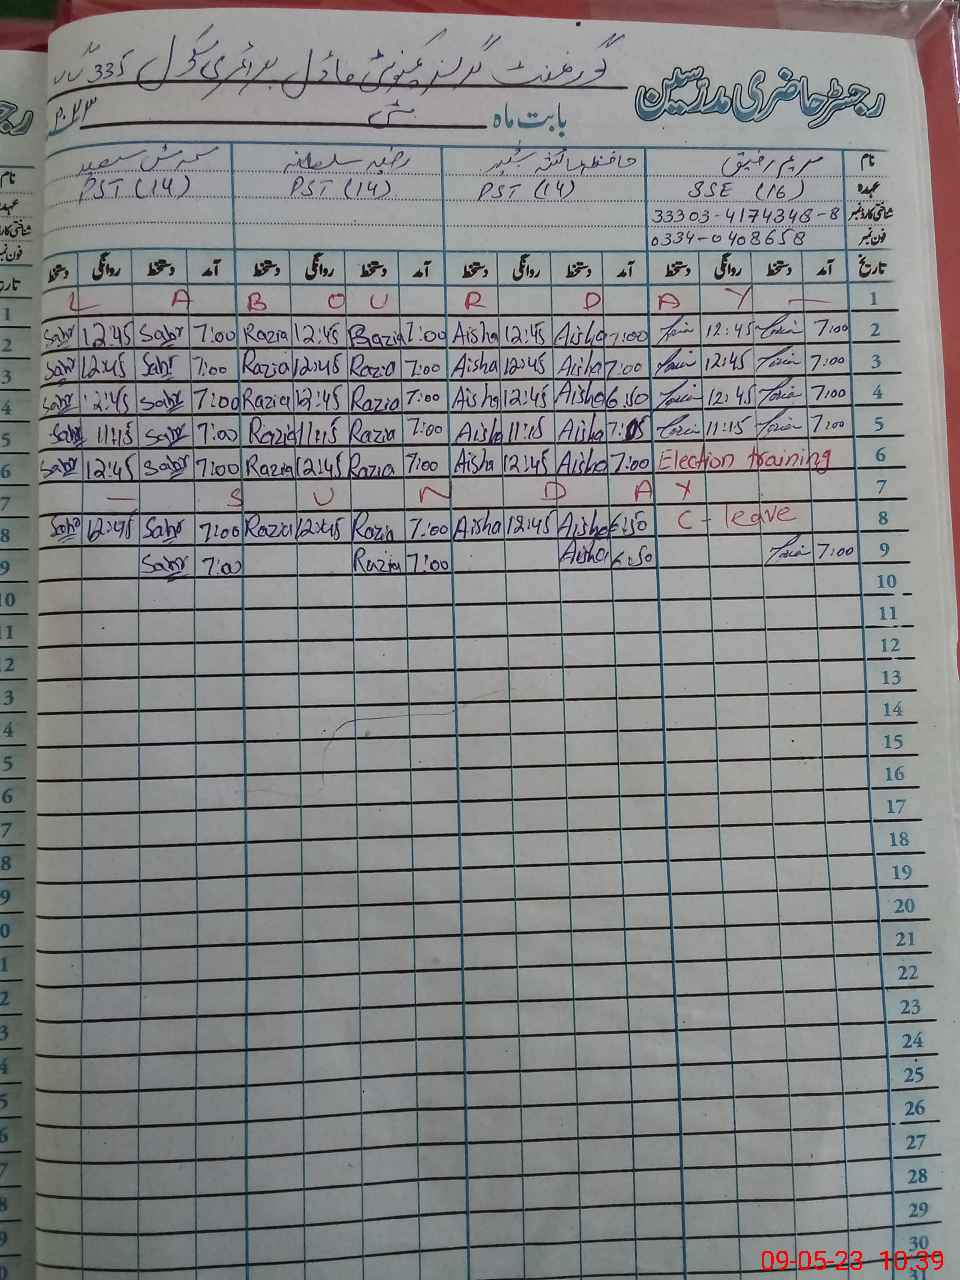 گورنمنٹ گرلز کمیونٹی ماڈل پرائمری سکول 335
رجسٹر حاضری مدرسین
بابت ماہ مئی ۲۰۲۳
نام مریم رفیق حافظہ عائشہ رضیہ سلطانہ سحرش سعید
عہدہ SSE (16) PST (14) PST (14) PST (14)
شناختی کارڈ نمبر 33303-4174348-8
فون نمبر 0334-0408658
تاریخ آمد دستخط روانگی دستخط آمد دستخط روانگی دستخط آمد دستخط روانگی دستخط آمد دستخط روانگی دستخط
L A B O U R D A Y - 1
Sahr 12:45 Sahr 7:00 Razia 12:45 Razia 7:00 Aisha 12:45 Aisha 7:00 12:45 7:00 2
Sahr 12:45 Sahr 7:00 Razia 12:45 Razia 7:00 Aisha 12:45 Aisha 7:00 12:45 7:00 3
Sahr 12:45 Sahr 7:00 Razia 12:45 Razia 7:00 Aisha 12:45 Aisha 6:50 12:45 7:00 4
Sahr 11:15 Sahr 7:00 Razia 11:15 Razia 7:00 Aisha 11:15 Aisha 7:05 11:15 7:00 5
Sahr 12:45 Sahr 7:00 Razia 12:45 Razia 7:00 Aisha 12:45 Aisha 7:00 Election training 6
- S U N D A Y 7
Sahr 12:45 Sahr 7:00 Razia 12:45 Razia 7:00 Aisha 12:45 Aisha 6:50 C - leave 8
Sahr 7:00 Razia 7:00 Aisha 6:50 7:00 9
10
11
12
13
14
15
16
17
18
19
20
21
22
23
24
25
26
27
28
29
30
31
09-05-23 10:39